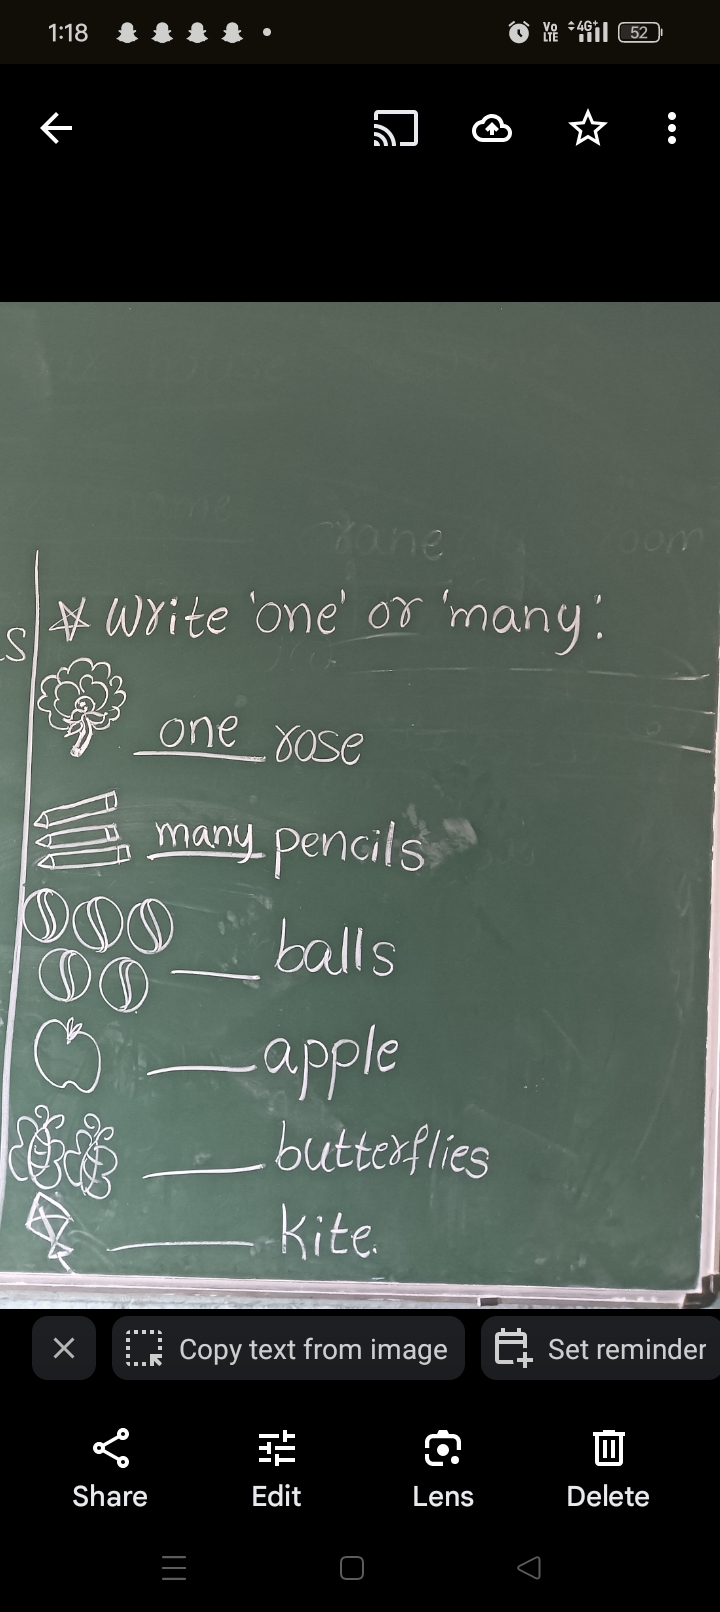 1:18 Vo LTE 4G+ 52
S
Write 'one' or 'many':
one rose
many pencils
___ balls
___ apple
___ butterflies
___ kite.
Copy text from image Set reminder
Share Edit Lens Delete